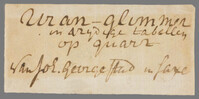 Uran-glimmer
in aardige tabellen
op quarz
van Joh. Georgenstad in Saxe